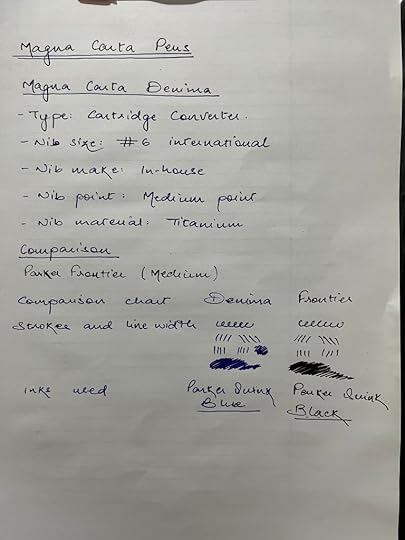 Magna Carta Pens
Magna Carta Denima
- Type: Cartridge Converter.
- Nib size: #6 international
- Nib make: In-house
- Nib point: Medium point
- Nib material: Titanium
Comparison
Parker Frontier (Medium)
Comparison chart Denima Frontier
Strokes and line width
inks used Parker Quink Parker Quink
Blue Black